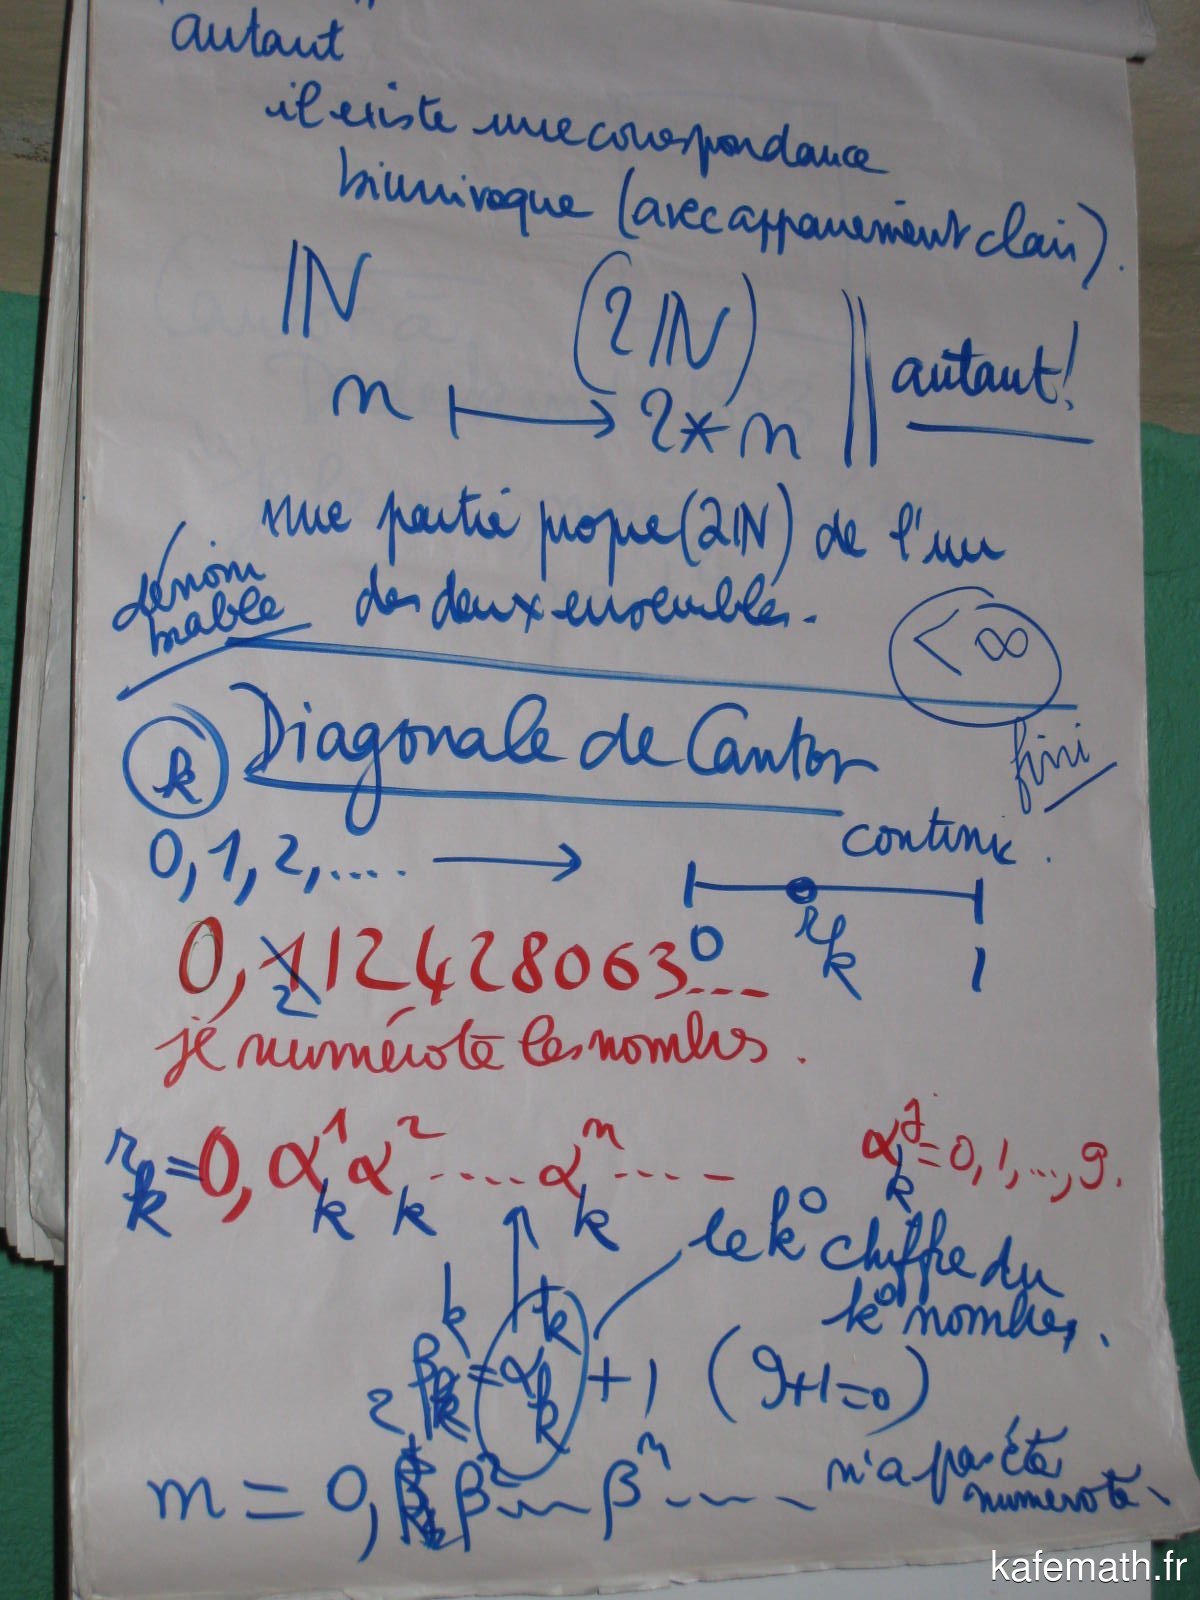 autant
il existe une correspondance
biunivoque (avec appariement clair).
ℕ (2ℕ) autant!
n ↦ 2*n
une partie propre (2ℕ) de l'un
des deux ensembles.
dénom
brable
< ∞
fini
k Diagonale de Cantor
0, 1, 2, .... → continu.
0 r_k 1
0, 1 12428063...
2
je numérote les nombres.
r_k = 0, α_k^1 α_k^2 ..... α_k^n ..... α_k^j = 0, 1, ..., 9.
le k° chiffre du
k° nombre.
β^k = α_k^k + 1 (9+1=0)
m = 0, β^2 ... β^n ..... n'a pas été
numéroté.
kafemath.fr